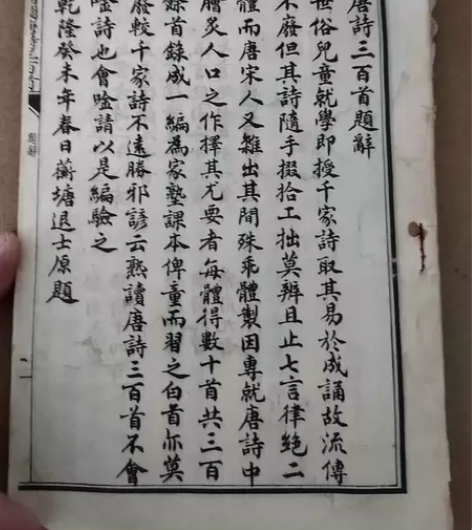 唐詩三百首題辭
世俗兒童就學即授千家詩取其易於成誦故流傳
不廢但其詩隨手掇拾工拙莫辨且止七言律絕二
體而唐宋人又雜出其間殊乖體製因專就唐詩中
膾炙人口之作擇其尤要者每體得數十首共三百
餘首錄成一編為家塾課本俾童而習之白首亦莫
廢較千家詩不遠勝邪諺云熟讀唐詩三百首不會
唫詩也會唫請以是編驗之
乾隆癸未年春日蘅塘退士原題
題辭